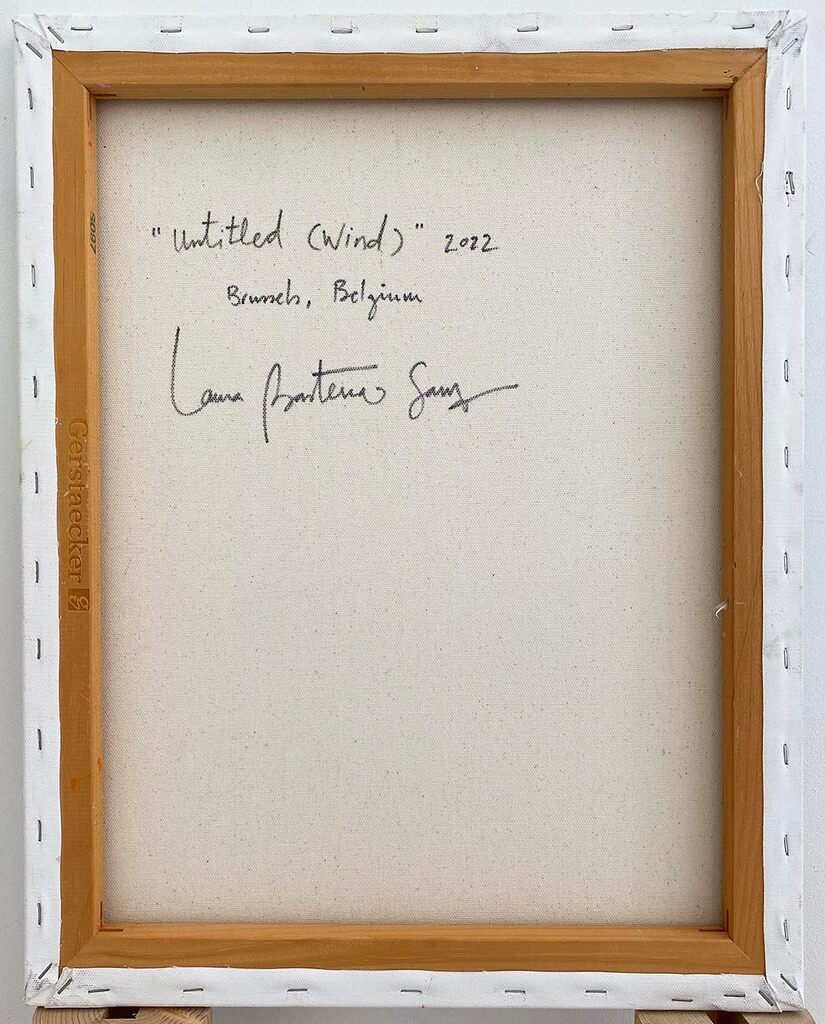 "Untitled (Wind)" 2022
Brussels, Belgium
Laura Sanz
Gerstaecker